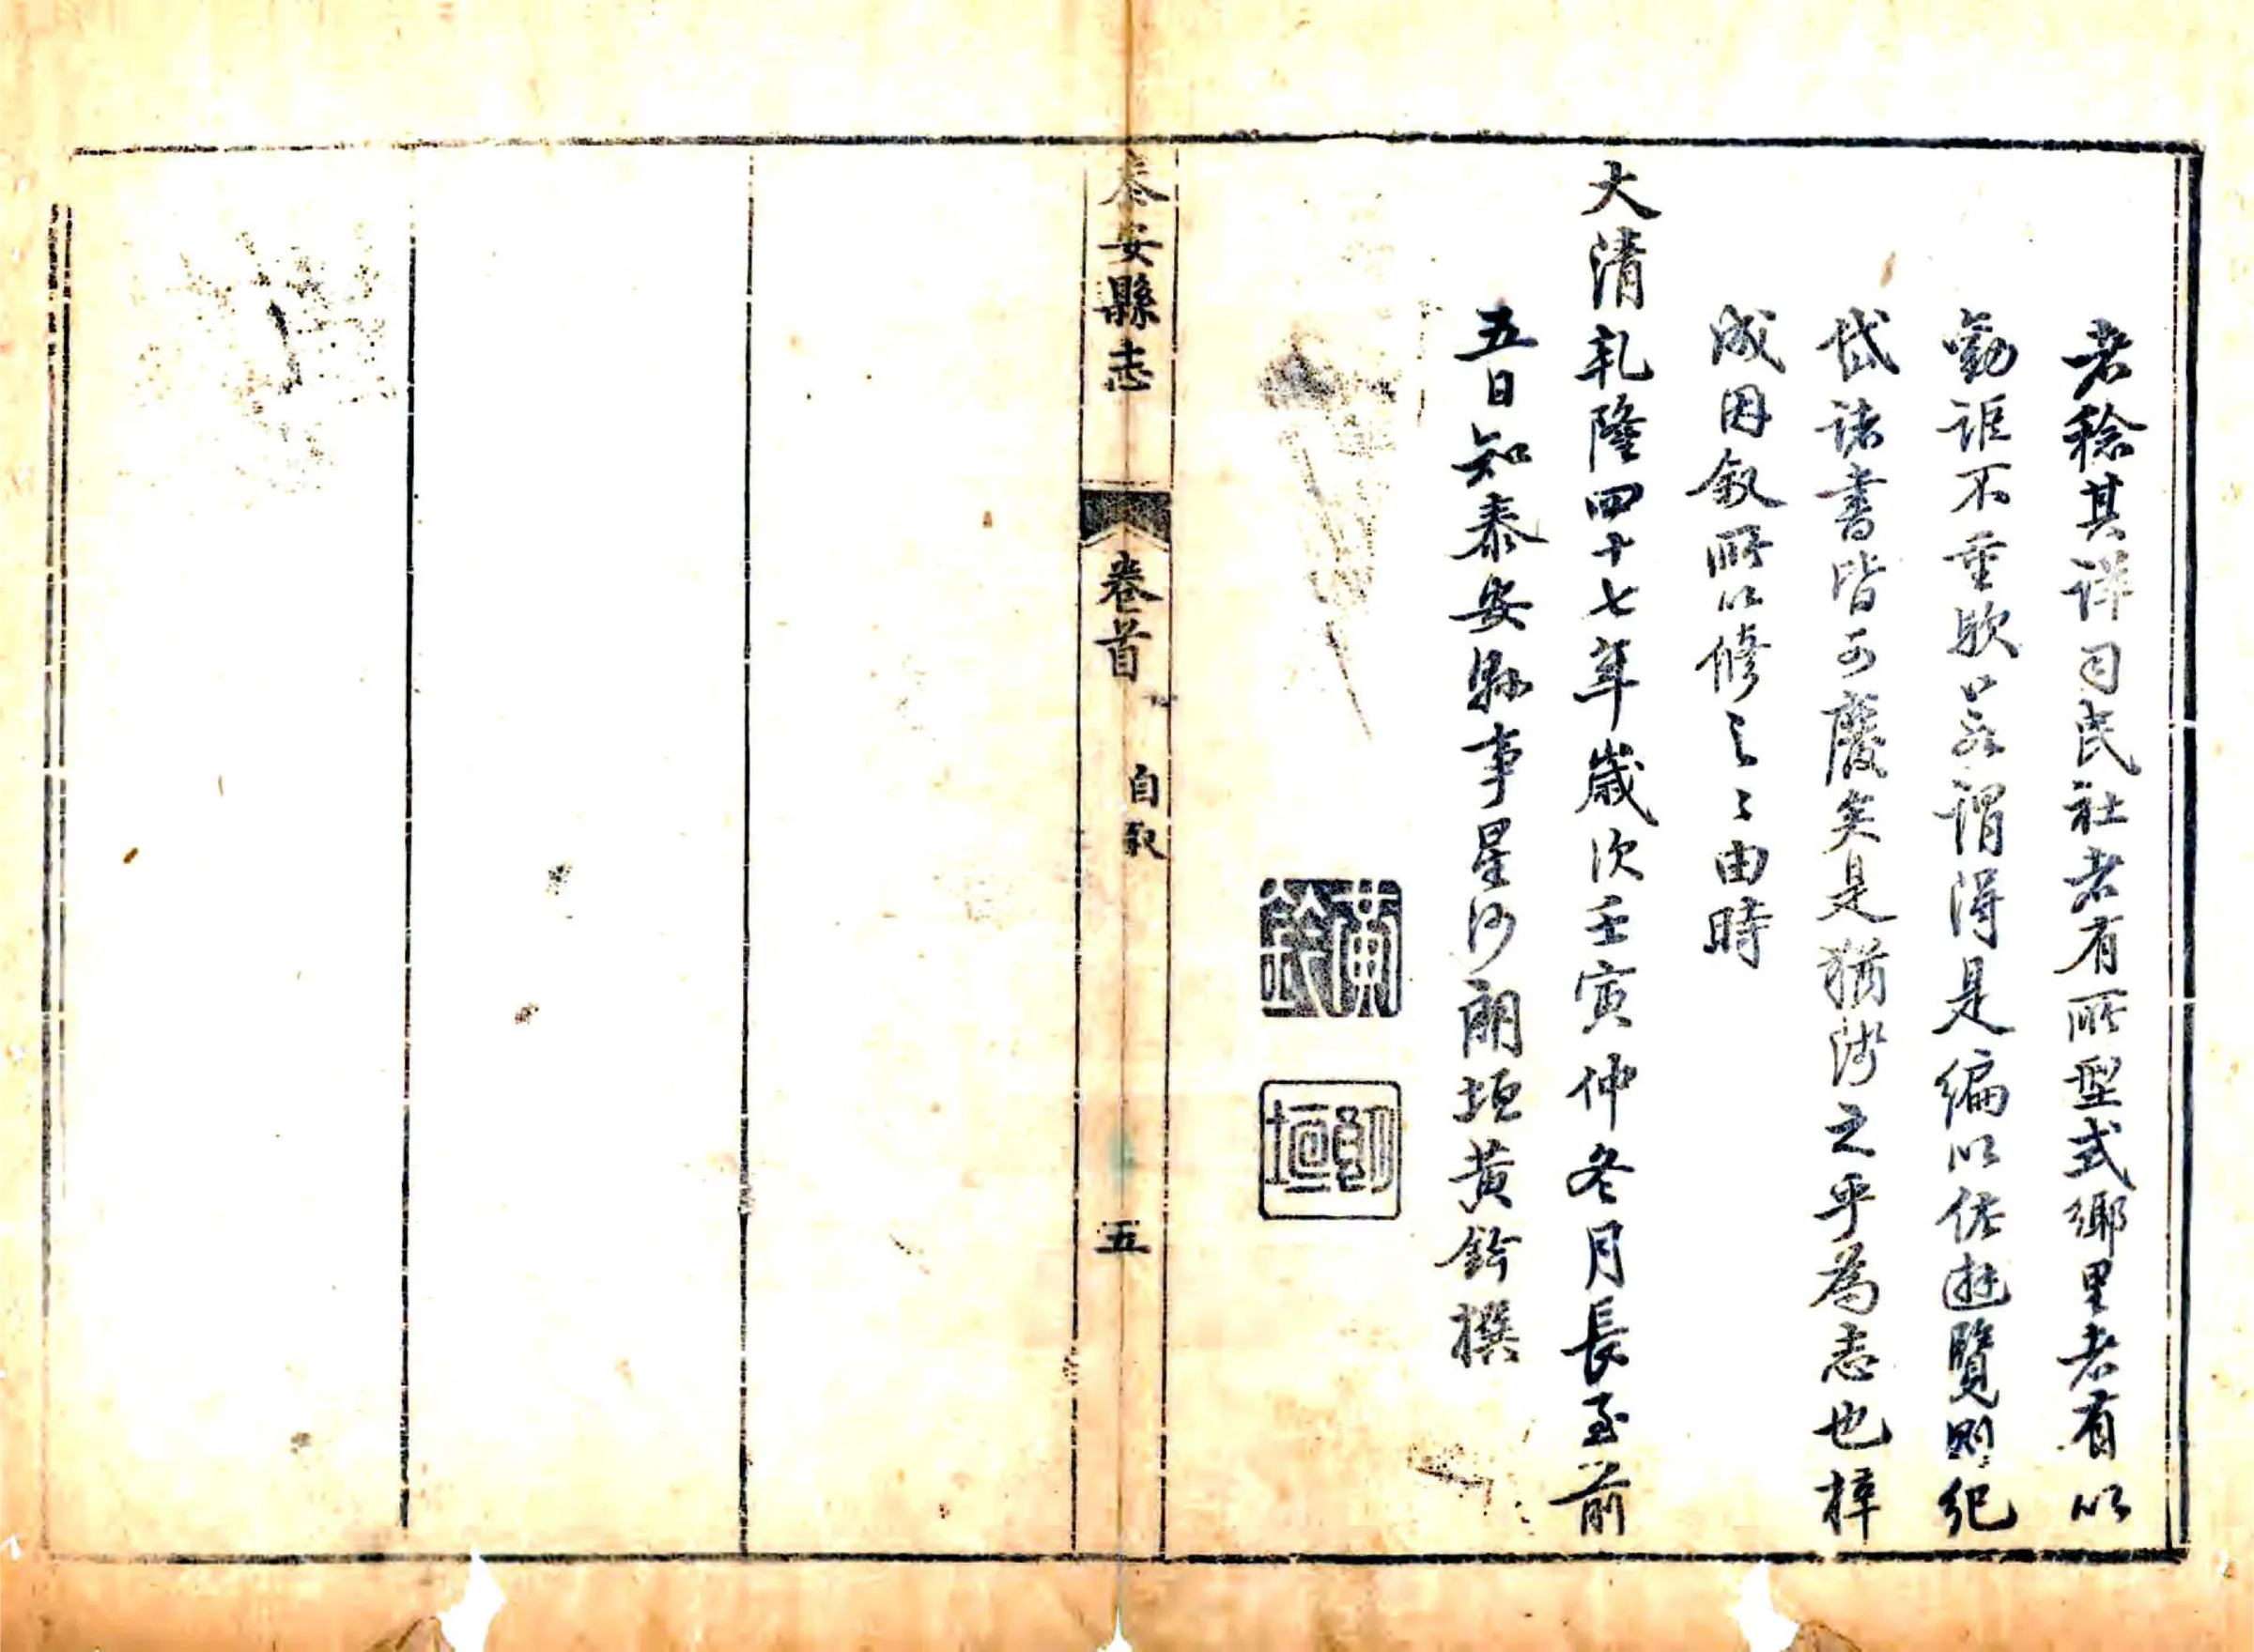 者稔其詳司民社者有所型式鄉里者有以
勸詎不重歟若謂得是編以佐遊覽則紀
岱諸書皆可廢矣是猶淺之乎為志也梓
成因叙所以修之之由時
大清乾隆四十七年歲次壬寅仲冬月長至前
五日知泰安縣事星沙朗垣黃鈐撰
黃鈐
朗垣
泰安縣志
卷首
自敘
五